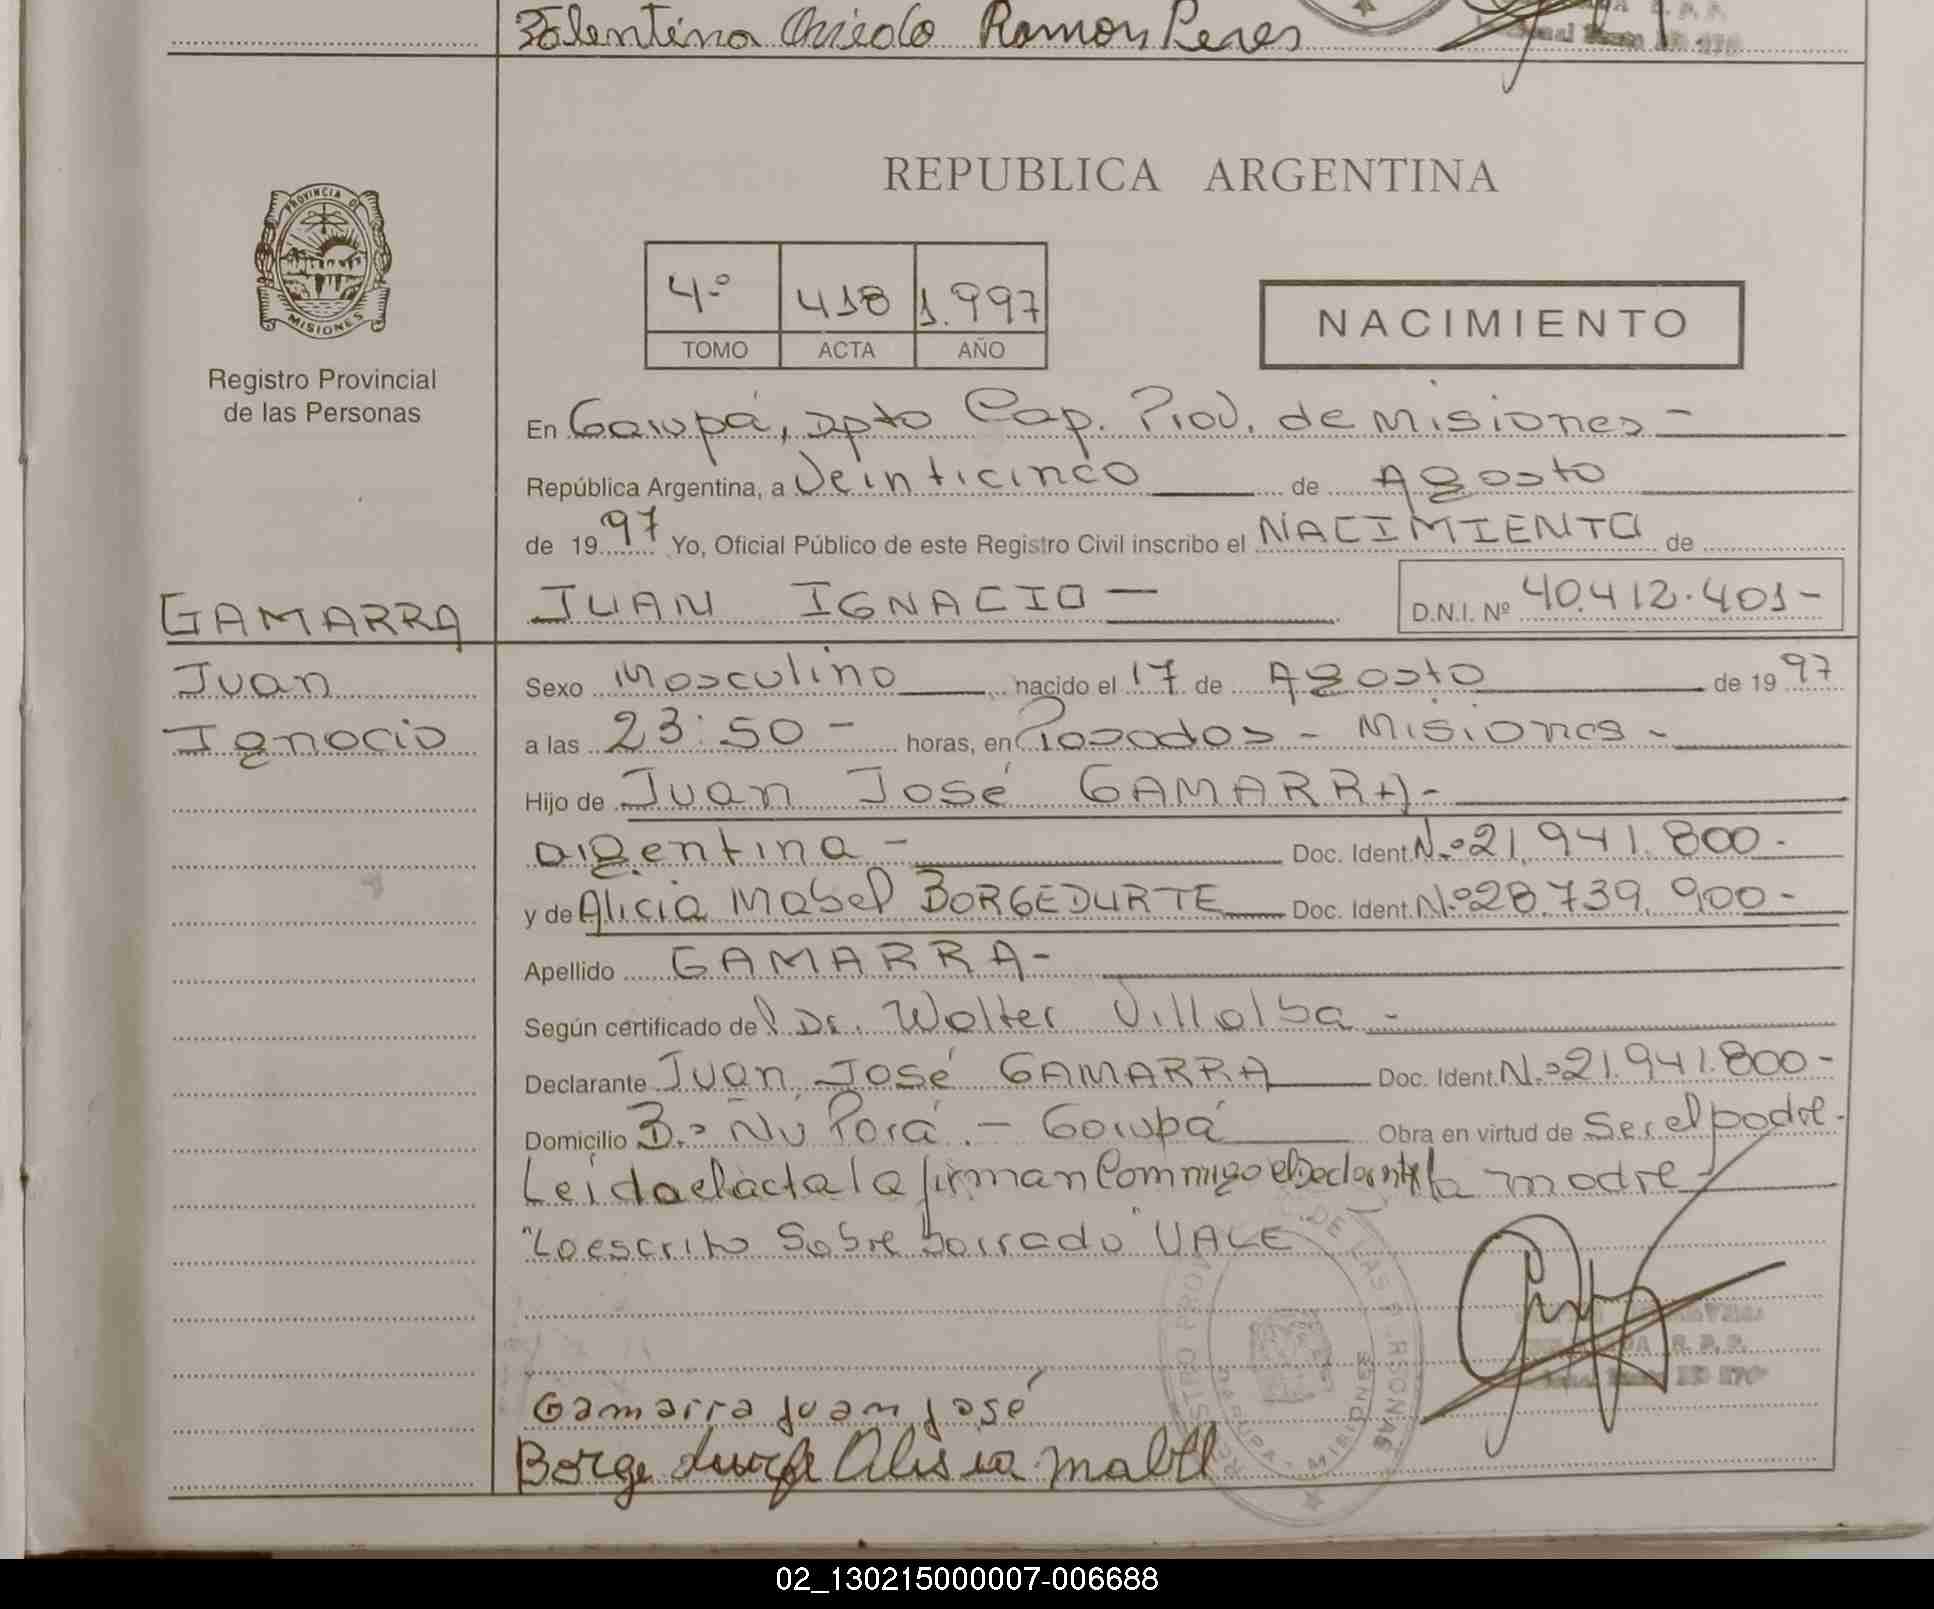 Ramon
REPUBLICA ARGENTINA
PROVINCIA DE
MISIONES
Registro Provincial
de las Personas
4º 418 1.997
TOMO ACTA AÑO
NACIMIENTO
En Garupá, Dpto Cap. Prov. de Misiones -
República Argentina, a Veinticinco de Agosto
de 1997 Yo, Oficial Público de este Registro Civil inscribo el NACIMIENTO de
GAMARRA
Juan
Ignacio
JUAN IGNACIO — D.N.I. Nº 40.412.401-
Sexo Masculino nacido el 17 de Agosto de 1997
a las 23:50 - horas, en Posadas - Misiones -
Hijo de Juan José GAMARRA-
argentina - Doc. Ident. N.º 21.941.800-
y de Alicia Mabel BORGEDURTE Doc. Ident. Nº 28.739.900-
Apellido GAMARRA-
Según certificado del Dr. Walter Villalba -
Declarante Juan José GAMARRA Doc. Ident. N.º 21.941.800-
Domicilio B.º Ñú Porá - Garupá Obra en virtud de Ser el padre-
Leida el acta la firman Conmigo el Declarante la madre
"Lo escrito Sobre borrado" VALE
Gamarra Juan José
Alisia Mabel
02_130215000007-006688